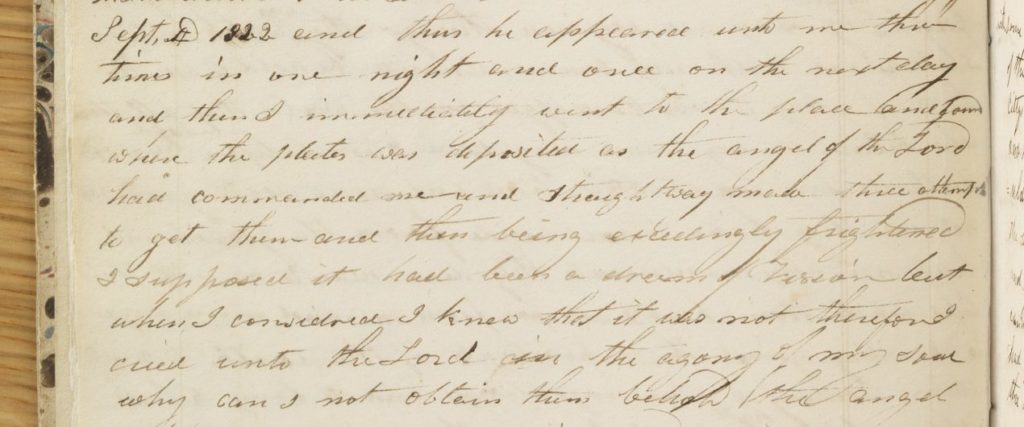 Sept. 1822 and thus he appeared unto me three
times in one night and once on the next day
and then I immediately went to the place and found
where the plates was deposited as the angel of the Lord
had commanded me and straightway made three attempts
to get them and then being excedingly frightened
I supposed it had been a dreem of Vision but
when I considred I knew that it was not therefore I
cried unto the Lord in the agony of my soul
why can I not obtain them behold the angel